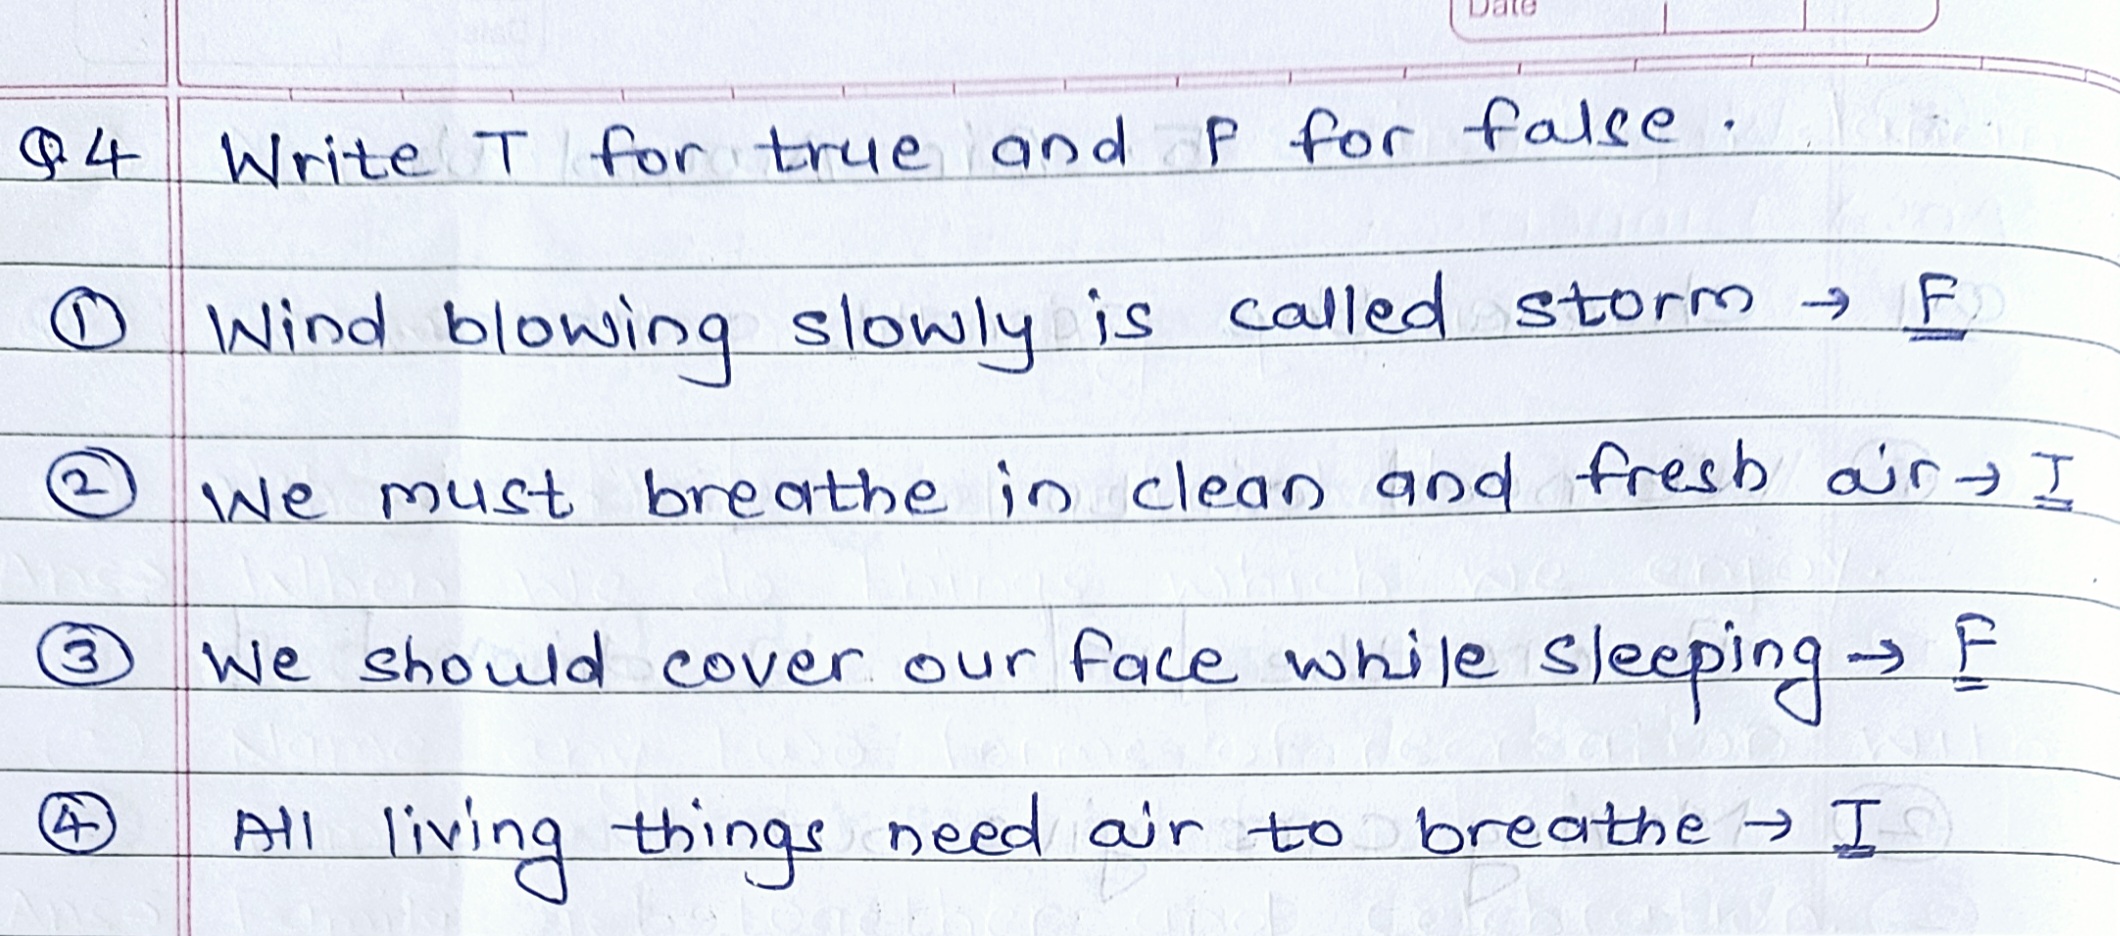 Date
Q4 Write T for true and F for false.
① Wind blowing slowly is called storm → F
② We must breathe in clean and fresh air → T
③ We should cover our face while sleeping → F
④ All living things need air to breathe → T